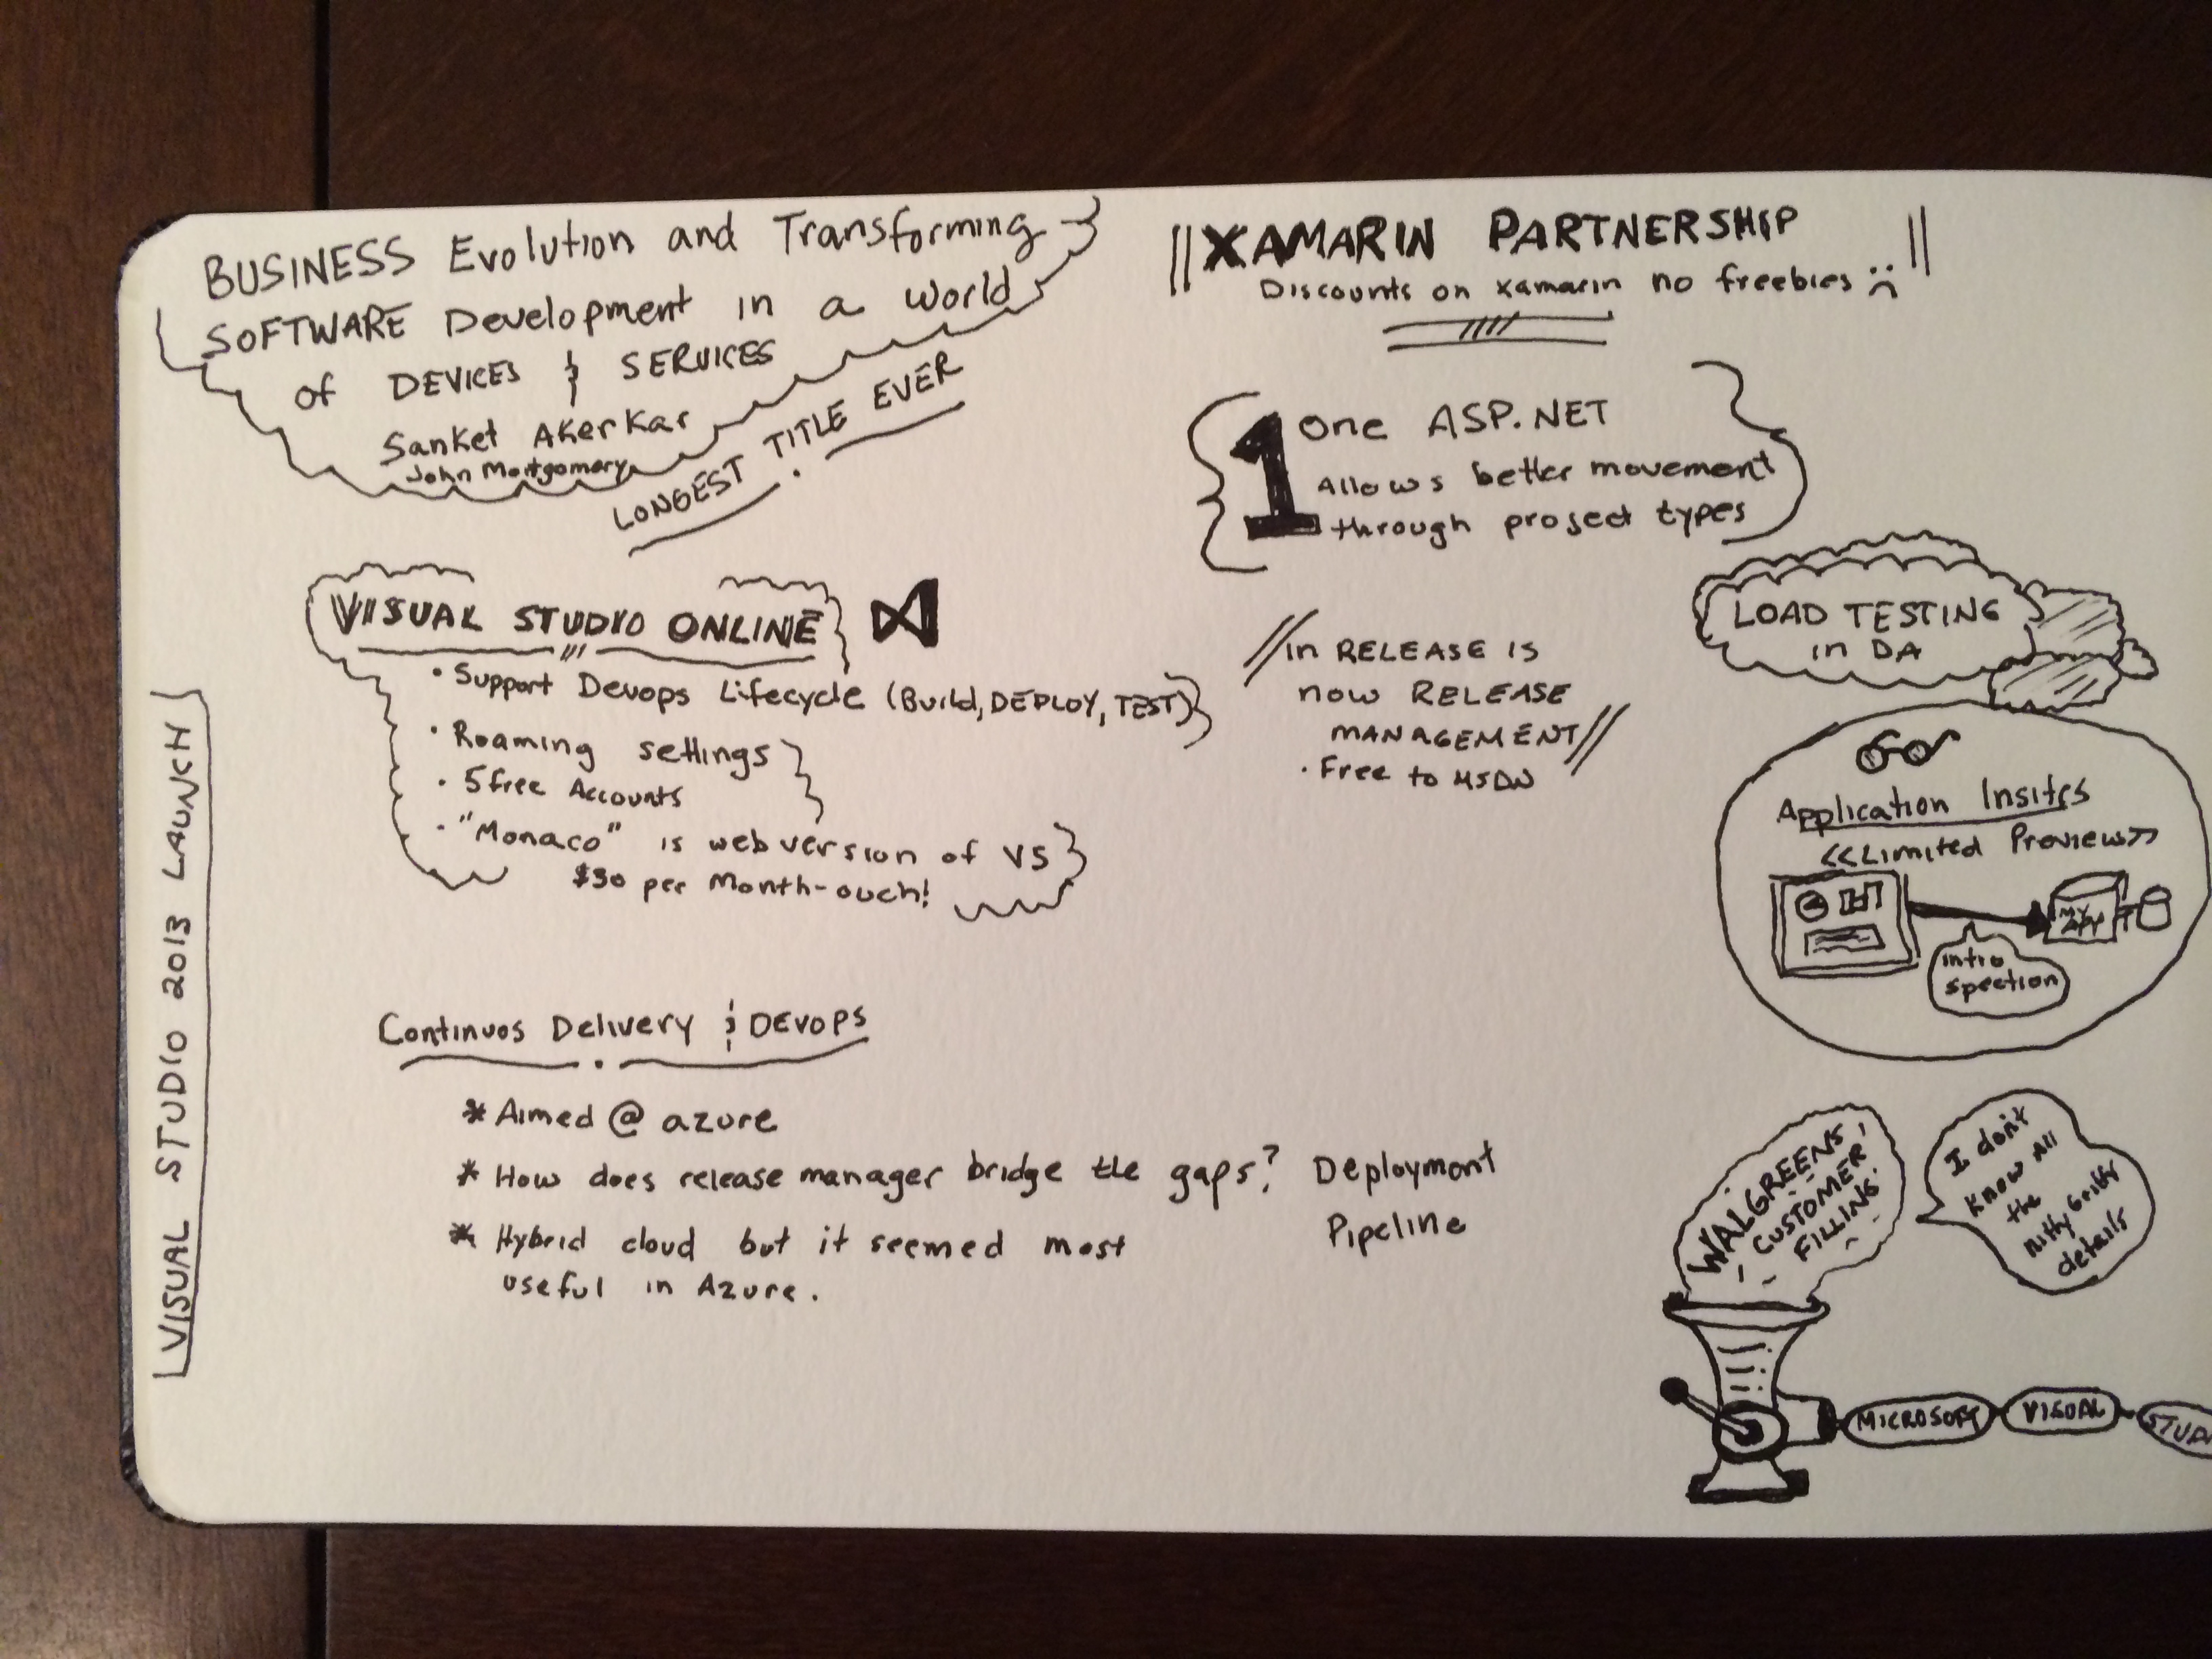 VISUAL STUDIO 2013 LAUNCH
BUSINESS Evolution and Transforming
SOFTWARE Development in a world
of DEVICES & SERVICES
Sanket Akerkar
John Montgomery
LONGEST TITLE EVER
VISUAL STUDIO ONLINE
• Support Devops Lifecycle (Build, DEPLOY, TEST)
• Roaming settings
• 5 free Accounts
• "Monaco" is web version of VS
$30 per Month-ouch!
Continuos Delivery & DEVOPS
* Aimed @ azure
* How does release manager bridge the gaps? Deployment
Pipeline
* Hybrid cloud but it seemed most
useful in Azure.
XAMARIN PARTNERSHIP
Discounts on xamarin no freebies :(
1 One ASP.NET
Allows better movement
through prosect types
//in RELEASE IS
now RELEASE
MANAGEMENT//
• Free to MSDN
LOAD TESTING
in DA
Application Insites
<<Limited Preview>>
intro
spection
WALGREENS
CUSTOMER
FILLING
I don't
know all
the
nitty Gritty
details
MICROSOFT
VISUAL